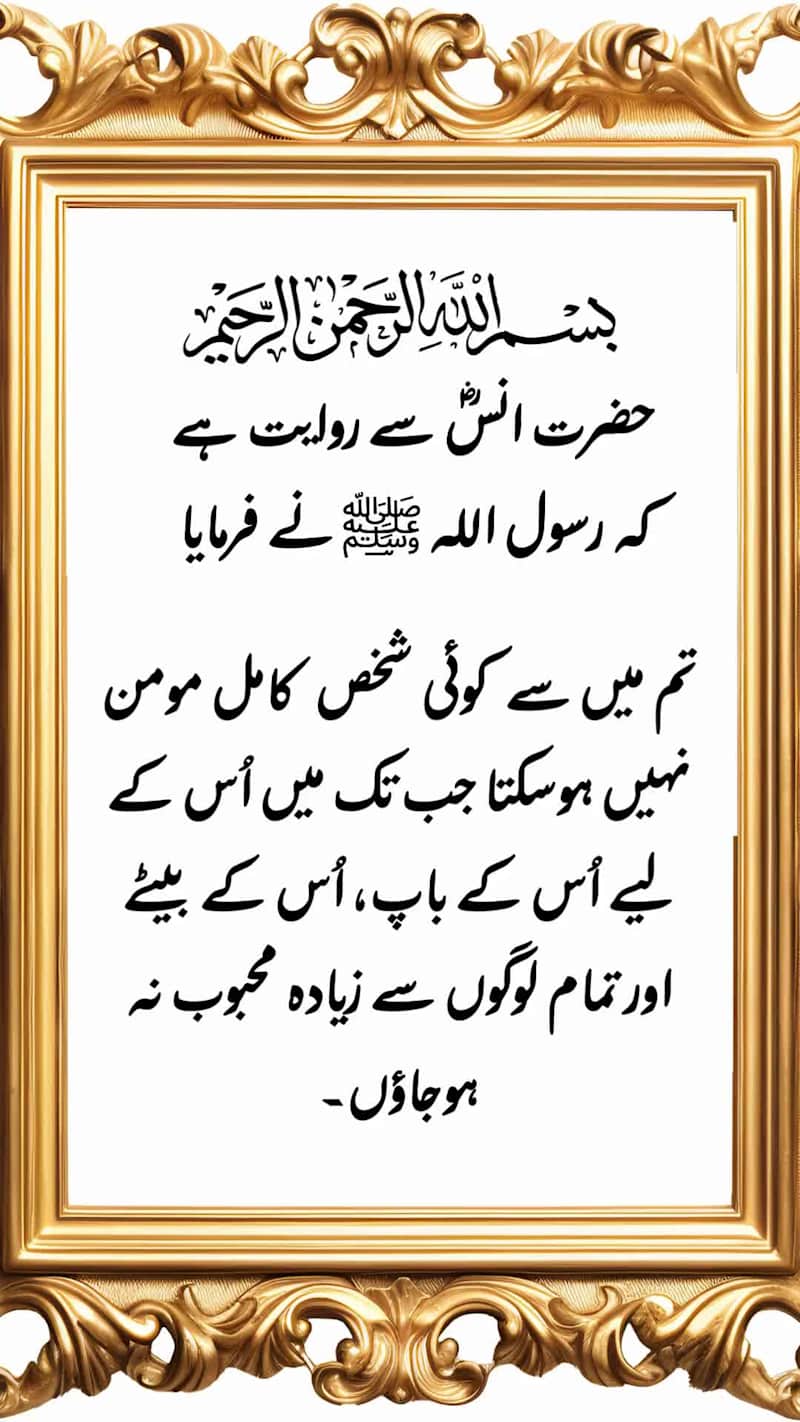 بسم الله الرحمن الرحيم
حضرت انسؓ سے روایت ہے
کہ رسول اللہ ﷺ نے فرمایا
تم میں سے کوئی شخص کامل مومن
نہیں ہوسکتا جب تک میں اُس کے
لیے اُس کے باپ، اُس کے بیٹے
اور تمام لوگوں سے زیادہ محبوب نہ
ہوجاؤں۔